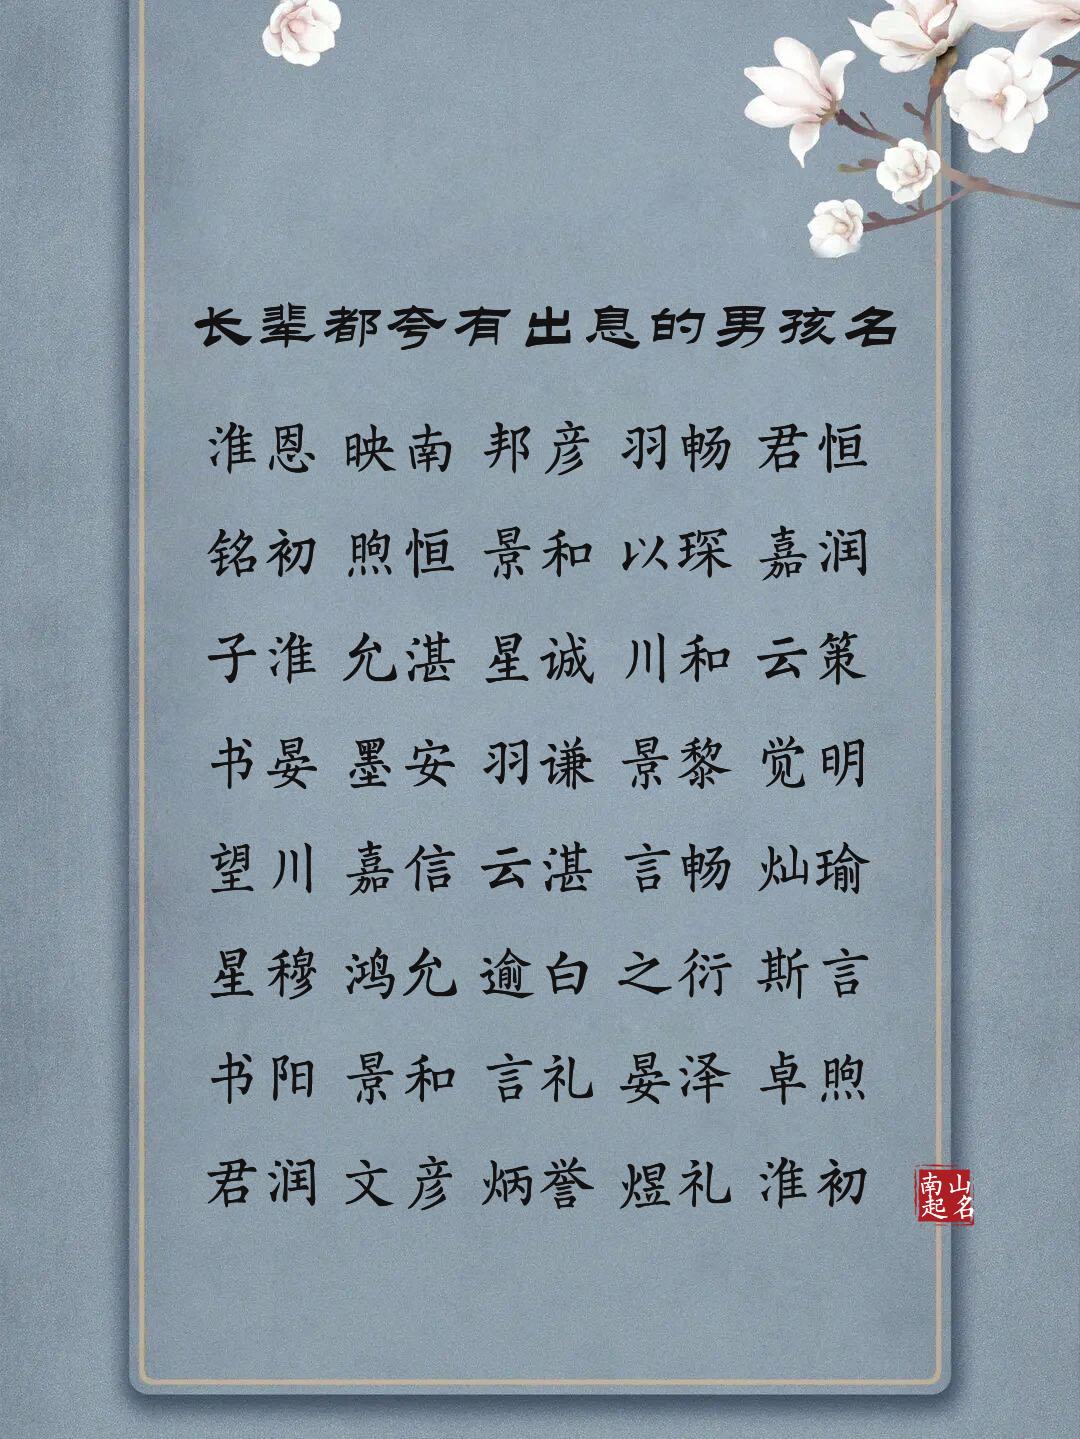 长辈都夸有出息的男孩名
淮恩 映南 邦彦 羽畅 君恒
铭初 煦恒 景和 以琛 嘉润
子淮 允湛 星诚 川和 云策
书晏 墨安 羽谦 景黎 觉明
望川 嘉信 云湛 言畅 灿瑜
星穆 鸿允 逾白 之衍 斯言
书阳 景和 言礼 晏泽 卓煦
君润 文彦 炳誉 煜礼 淮初
南山
起名